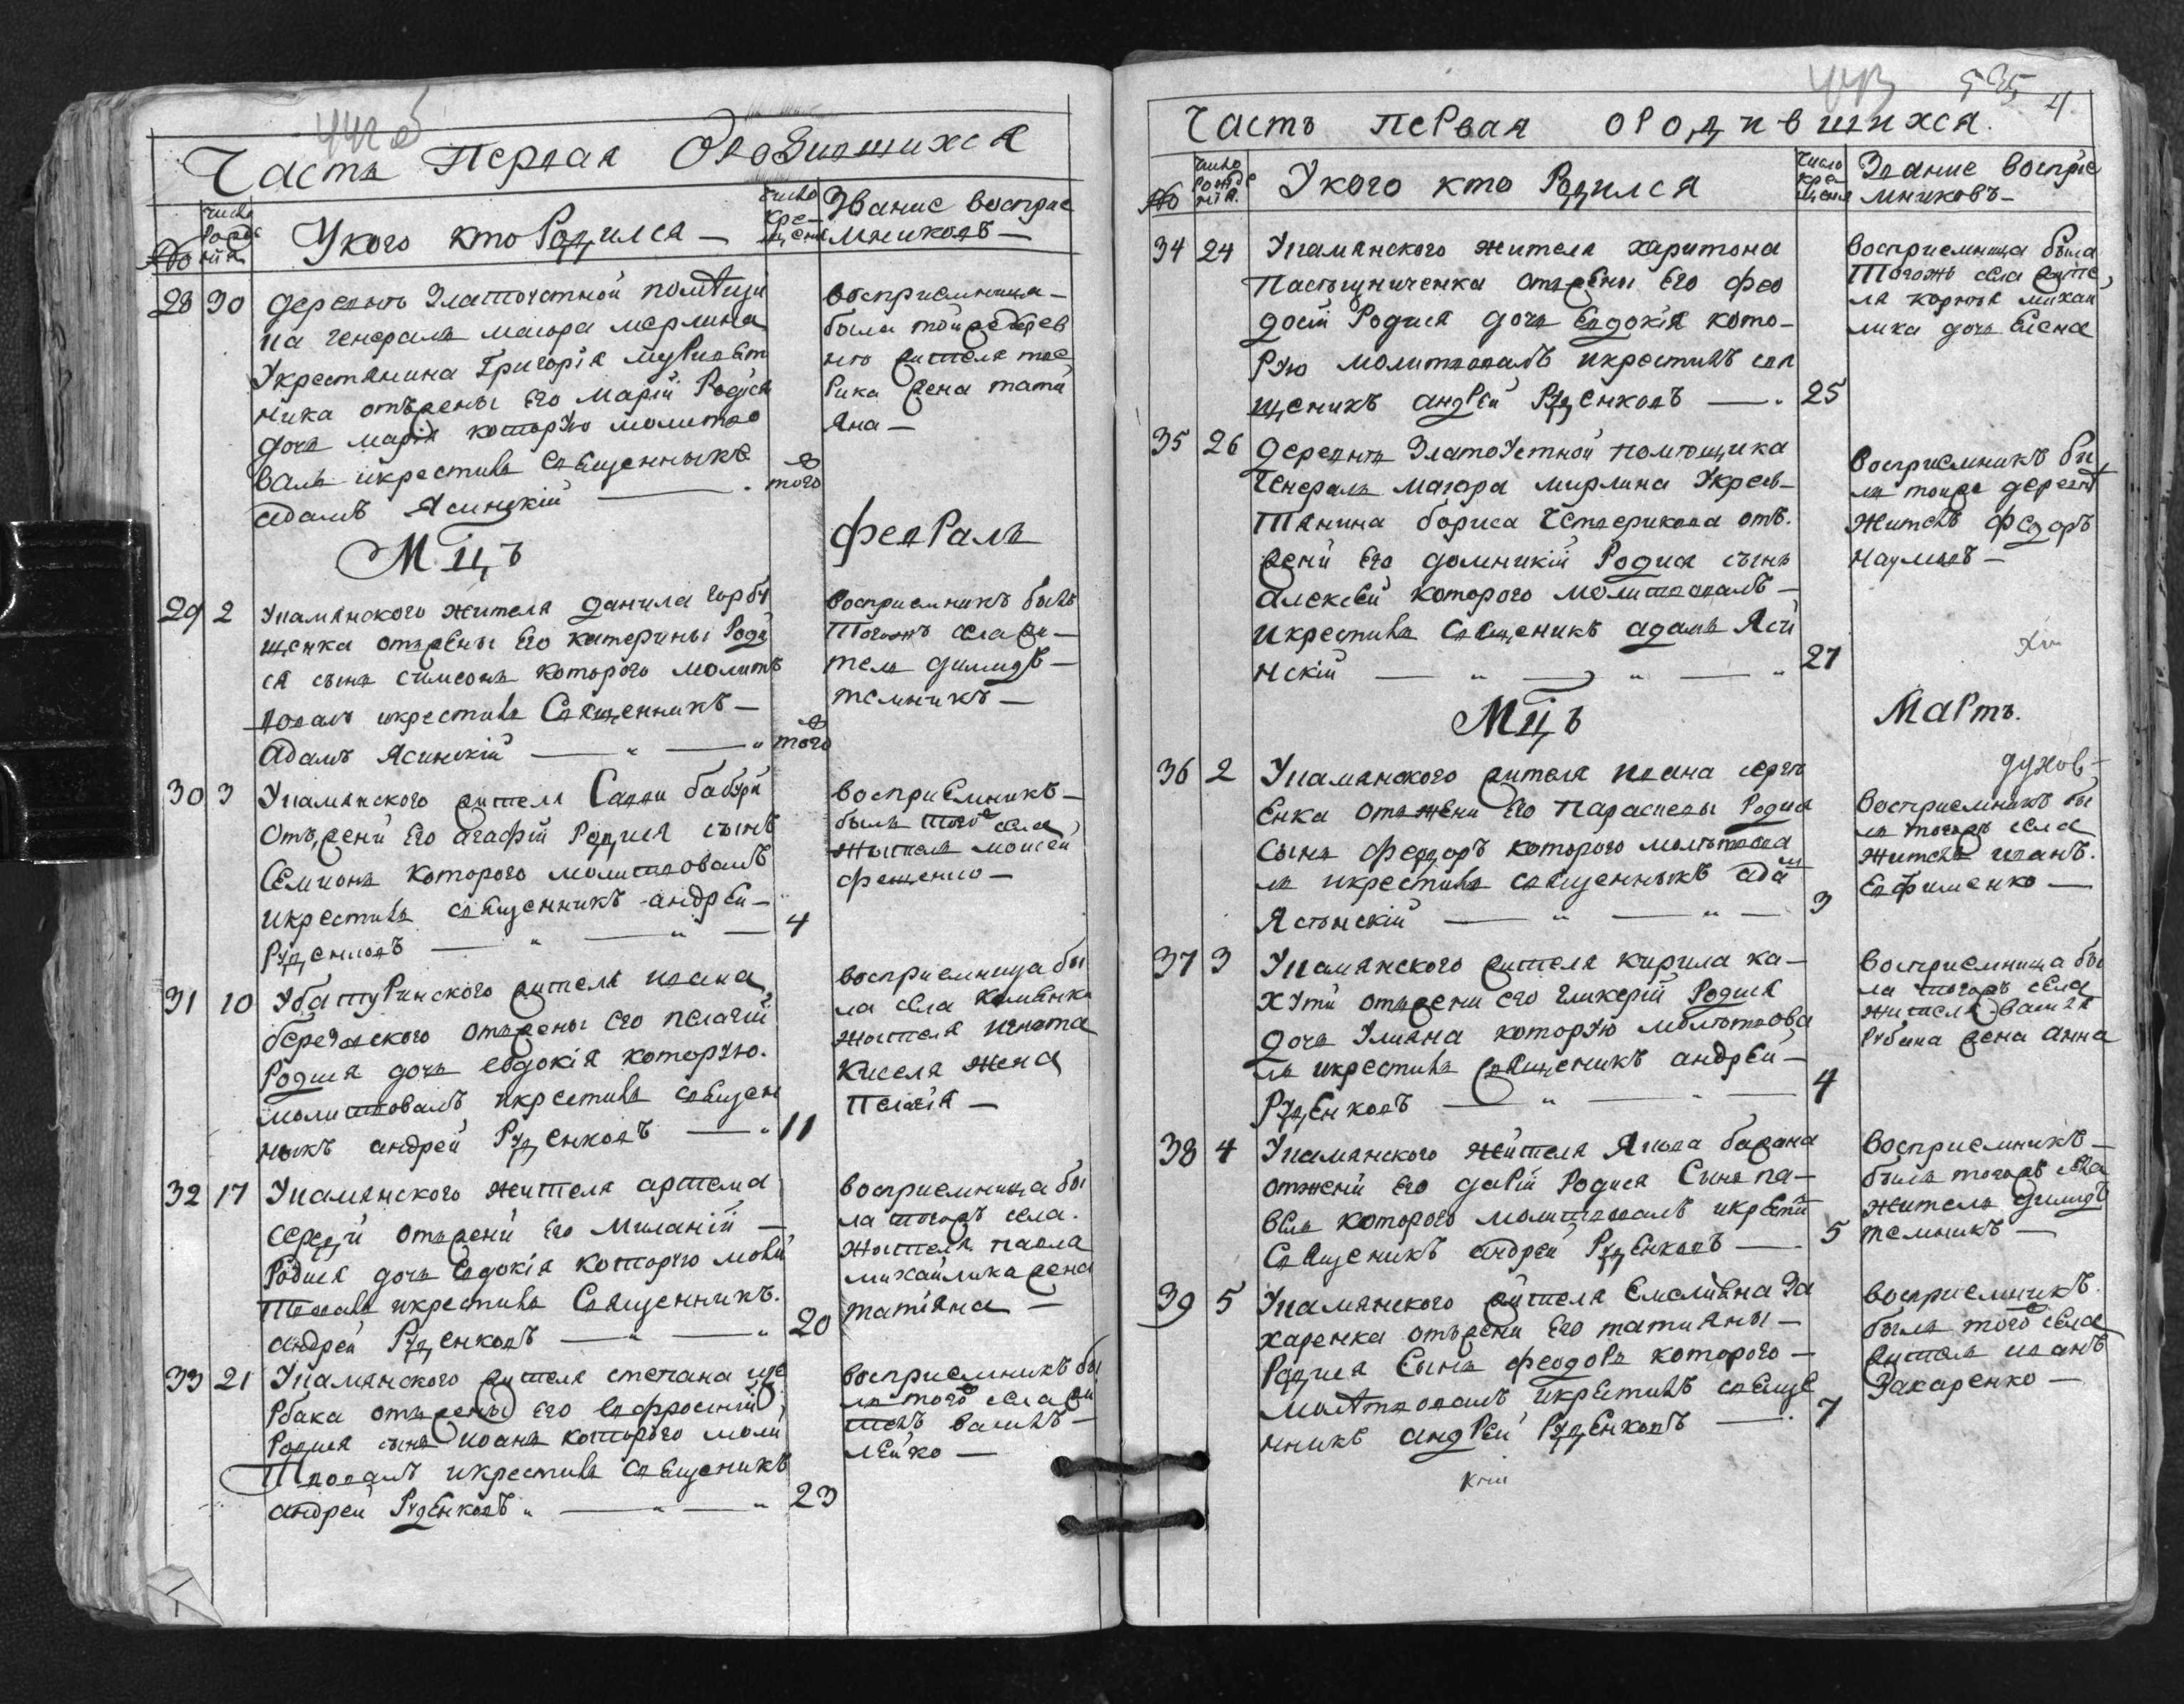 Часть Первая О Родившихся
№
число рожде нія
У кого кто Родился —
число Кре— щенія
Званіе воспріе
мниковъ —
28 30 деревни Златоустной помѣщи
ка генерала маіора мерлина
У крестянина Григорія
ника отъ жены Его Маріи Родися
дочь марія которую молитво
валъ икрестилъ Священныкъ
адамъ Ясинскій — того
восприемница —
была тоиже дерев
ни жителя
жена тати
яна —
Мцъ Февраль
29 2 Укаманского жителя данила горбу
щенка отжены Его катерины Роди
ся сынъ симеонъ которого молитв
вовалъ икрестилъ Священникъ —
Адамъ Ясинскій — того
Восприемникъ былъ
Тогожъ села жи—
тель димидъ —
темникъ —
30 3 Укаманского жителя Саввы бабури
Отъ жени Его агафіи Родися сынъ
Семионъ которого молитвовалъ
икрестилъ священникъ андрей —
Руденковъ — 4
восприемникъ —
былъ того села
Житель моисей
фещенко —
31 10 Убатуринского жителя ивана
отжены Его пелагіи
Родися дочь евдокія которую.
молитвовалъ икрестилъ священ
никъ андрей Руденковъ — 11
восприемница бы
ла села
жителя игната
Кисела Жена
Пелагія —
32 17 Укаманского жителя артема
середи отжени Его Миланіи —
Родися дочь Евдокія которую моли
твовалъ икрестилъ Священникъ.
андрей Руденковъ — 20
восприемница бы
ла тогожъ села.
жителя павла
михайлика жена
татіяна —
33 21 Укаманского жителя степана ще
рбака отжены Его Евфросиніи
Родися сынъ иоанъ которого моли
Твовалъ икрестилъ Священикъ
андрей Руденковъ — 23
восприемникъ бы
лъ того села жи
тель
лейко —
535 4
Часть первая о родившихся.
№
число рожде нія.
У кого кто Родился
Число кре щенія
Званіе воспріе
мниковъ —
34 24 Укаманского жителя харитона
Пастышниченка отжены Его фео
досіи Родися дочь Евдокія кото—
рую молитвовалъ икрестилъ свя
щеникъ андрей Руденковъ — 25
восприемница была
Тогожъ села жите
ля михай
лика дочь Елена
35 26 Деревни Златоустной помѣщика
Генерала маіора мирлина Укрес—
тянина бориса Четверикова отъ.
жени Его домникіи Родися сынъ
алексѣй которого молитвовалъ —
икрестилъ Священикъ адамъ Яси
нскій — 27
восприемникъ бы
лъ тоиже деревни
Житель Федоръ
Наумовъ —
Мцъ Мартъ.
36 2 Укаманского жителя ивана сергѣ
Енка отжени Его Парасковы Родися
сынъ федоръ которого молитвова
лъ икрестилъ священныкъ адам
Ясынскій — 3
духов—
восприемникъ бы
лъ тогожъ села
житель иванъ.
Евфименко —
37 3 Укаманского жителя кирила ка—
хути отжени его гликеріи Родися
дочь Улиана которую молитвова
лъ икрестилъ священикъ андрей —
Руденковъ — 4
восприемница бы
ла тогожъ села
жителя
Рубана жена анна
38 4 Укаманского жителя Якова барана
отжени Его даріи Родися Сынъ па—
вѣлъ которого молитвовалъ икрести
Священикъ андрей Руденковъ — 5
восприемникъ —
былъ тогожъ села
житель димидъ
темникъ —
39 5 Укаманского жителя Емелияна За
харенка отъжени Его татияны —
Родися Сынъ феодоръ которого —
молитвовалъ икрестилъ свяще
нникъ андрей Руденковъ — 7
восприемникъ.
былъ того села
житель иванъ
Захаренко —